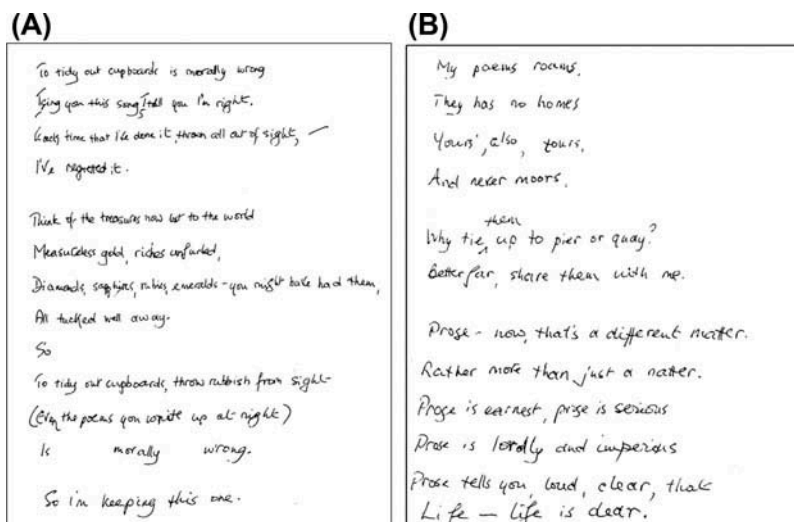 (A)
To tidy out cupboards is morally wrong
I sing you this song, I tell you I'm right.
Each time that I've done it, thrown all out of sight,
I've regretted it.
Think of the treasures now lost to the world
Measureless gold, riches unfurled,
Diamonds, sapphires, rubies, emeralds - you might have had them,
All tucked well away.
So
To tidy out cupboards, throw rubbish from sight
(Even the poems you write up at night)
Is morally wrong.
So I'm keeping this one.
(B)
My poems roams,
They has no homes
Yours', also, yours,
And never moors.
Why tie them up to pier or quay?
Better far, share them with me.
Prose - now, that's a different matter.
Rather more than just a natter.
Prose is earnest, prose is serious
Prose is lordly and imperious
Prose tells you, loud, clear, that
Life — life is dear.